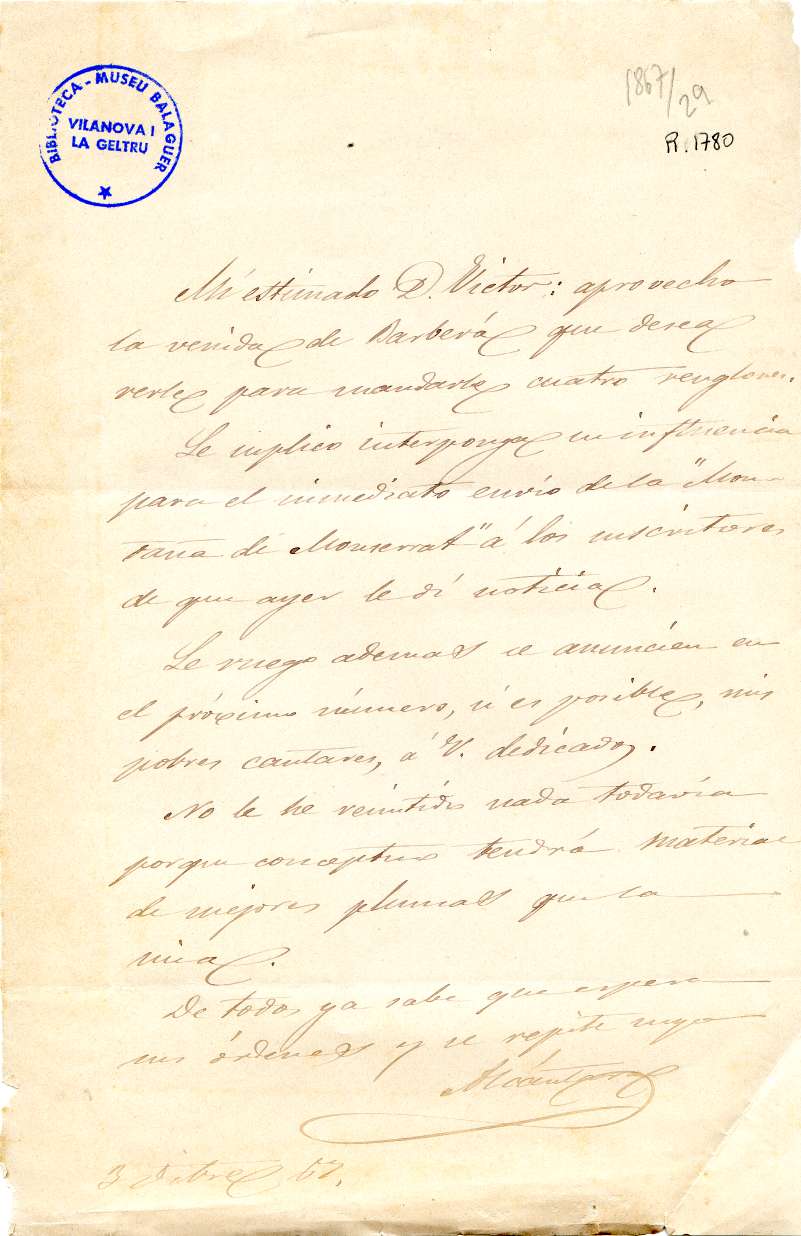 BIBLIOTECA - MUSEU BALAGUER
VILANOVA I
LA GELTRU
1867/29
R. 1780
Mi estimado D. Victor: aprovecho
la venida de Barberá que desea
verle para mandarle cuatro renglones.
Le suplico interponga su influencia
para el inmediato envío de la "Mon-
taña de Monserrat" á los suscritores
de que ayer le dí noticia.
Le ruego ademas se anuncien en
el próximo número, si es posible, mis
pobres cantares, á V. dedicados.
No le he remitido nada todavía
porque conceptuo tendrá materia
de mejores plumas que la
mia.
De todos ya sabe que espera
sus órdenes y se repite suyo
Alcántara
3 67.